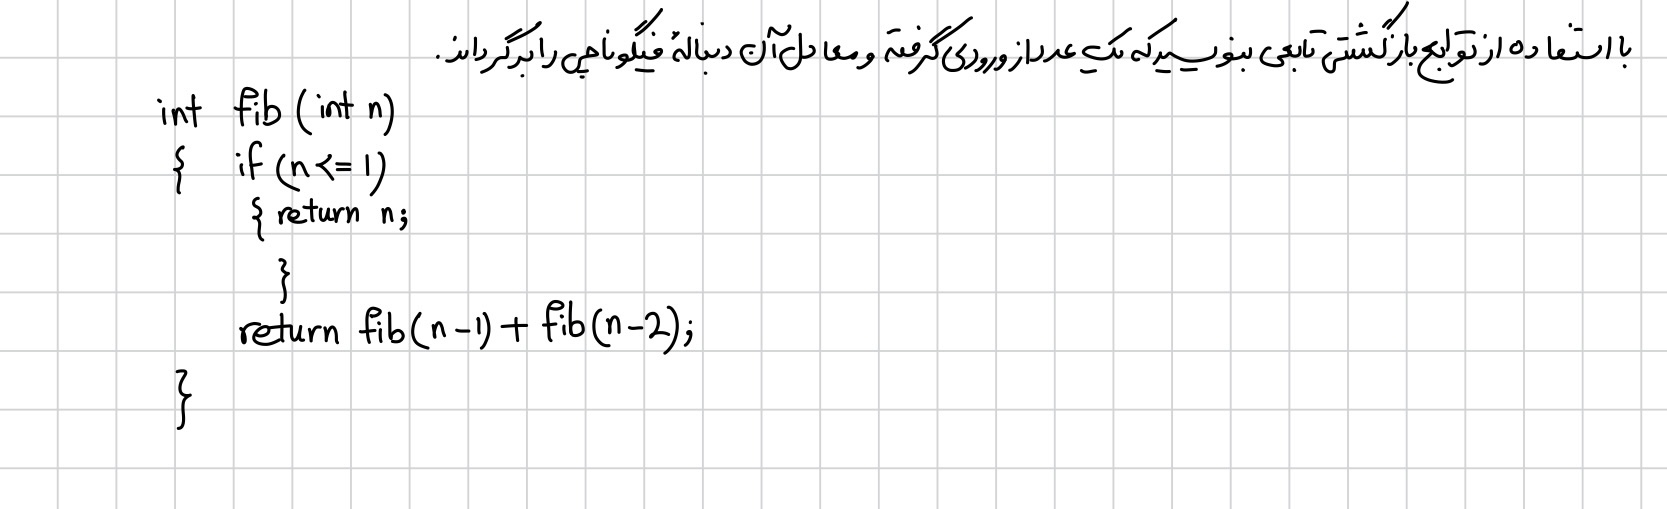 با استفاده از توابع بازگشتی تابعی بنویسید که یک عدد از ورودی گرفته و معادل آن دنبالهٔ فیگوناچی را برگرداند.
int fib (int n)
{ if (n <= 1)
{ return n;
}
return fib(n-1) + fib(n-2);
}